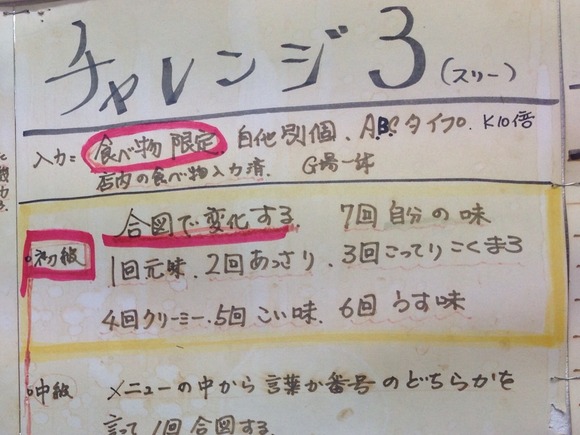 チャレンジ3(スリー)
入力=食べ物限定.自他別個、ABCタイプ.K10倍
店内の食べ物入力済. G場一体
合図で変化する 7回自分の味
初級
1回元味、2回あっさり、3回こってりこくまろ
4回クリーミー.5回こい味、6回うす味
中級 メニューの中から言葉か番号のどちらかを
言って1回合図する